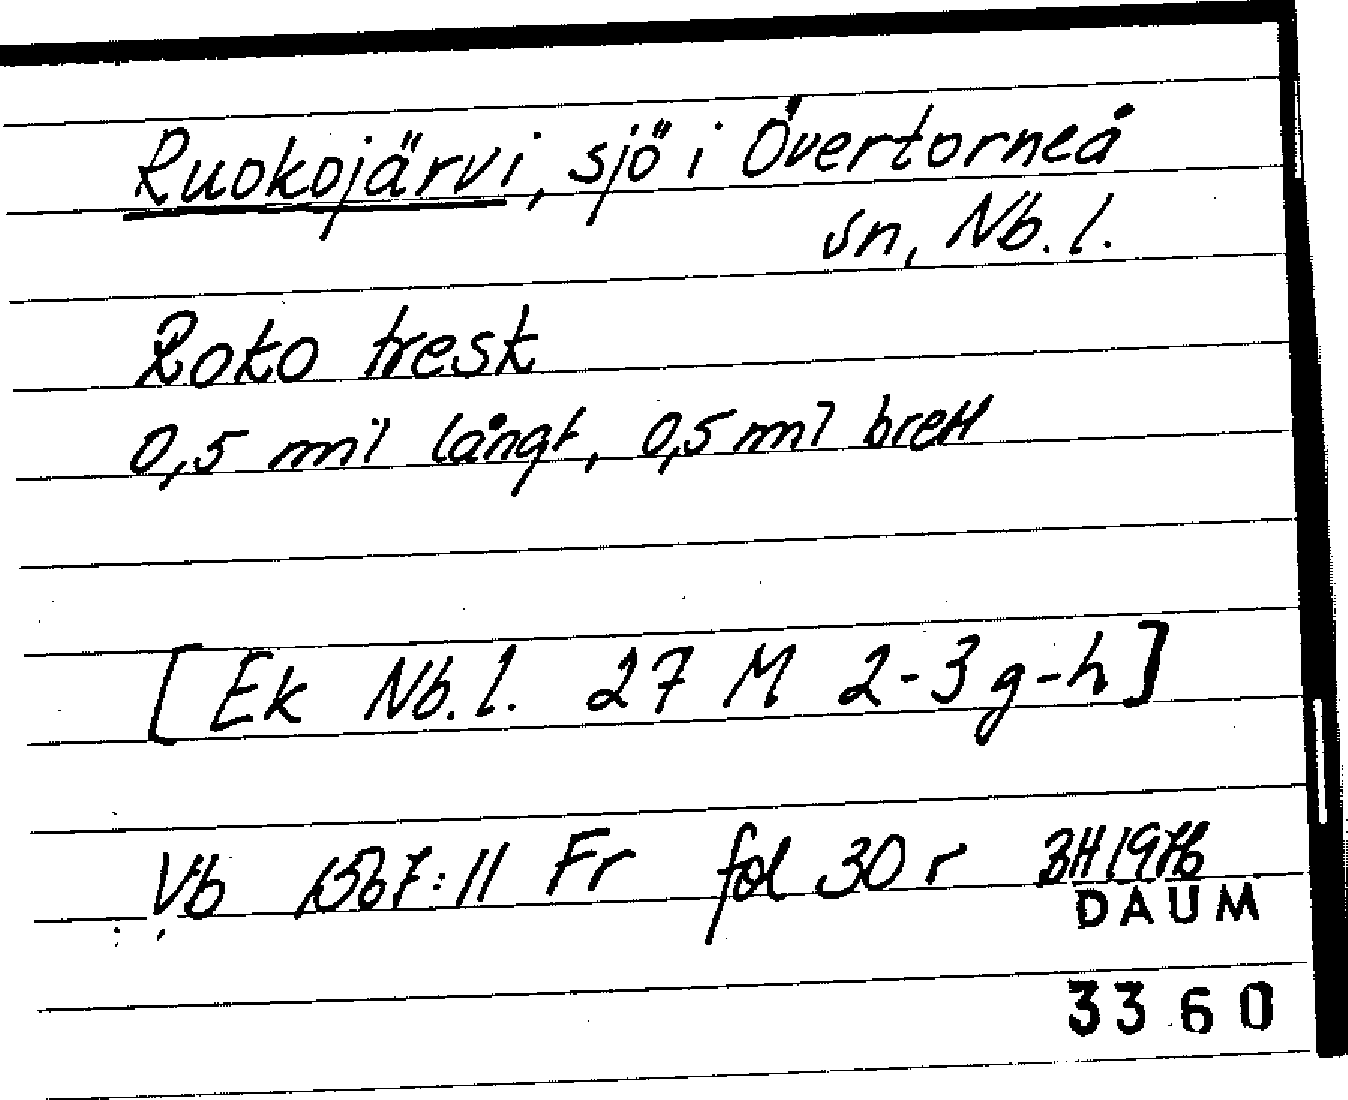 Ruokojärvi, sjö i Övertorneå
sn, Nb. l.
Roko tresk
0,5 mil långt, 0,5 mil brett
[Ek Nb. l. 27 M 2-3 g-h]
Vb 1567:11 Fr fol 30 r BH 1976
DAUM
3360